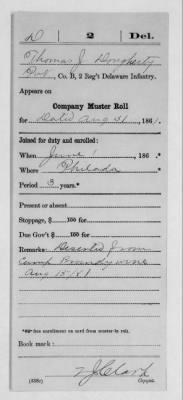 D 2 Del.
Thomas J Dougherty
Pvt, Co. B, 2 Reg't Delaware Infantry.
Appears on
Company Muster Roll
for Dated Aug 31, 1861.
Joined for duty and enrolled:
When June 1, 186 . *
Where Philada
Period 3 years.*
Present or absent
Stoppage, $ 100 for
Due Gov't $ 100 for
Remarks: Deserted from
Camp Brandywine
Aug 15/61
*See enrollment on card from muster-in roll.
Book mark:
Clark
(358c) Copyist.